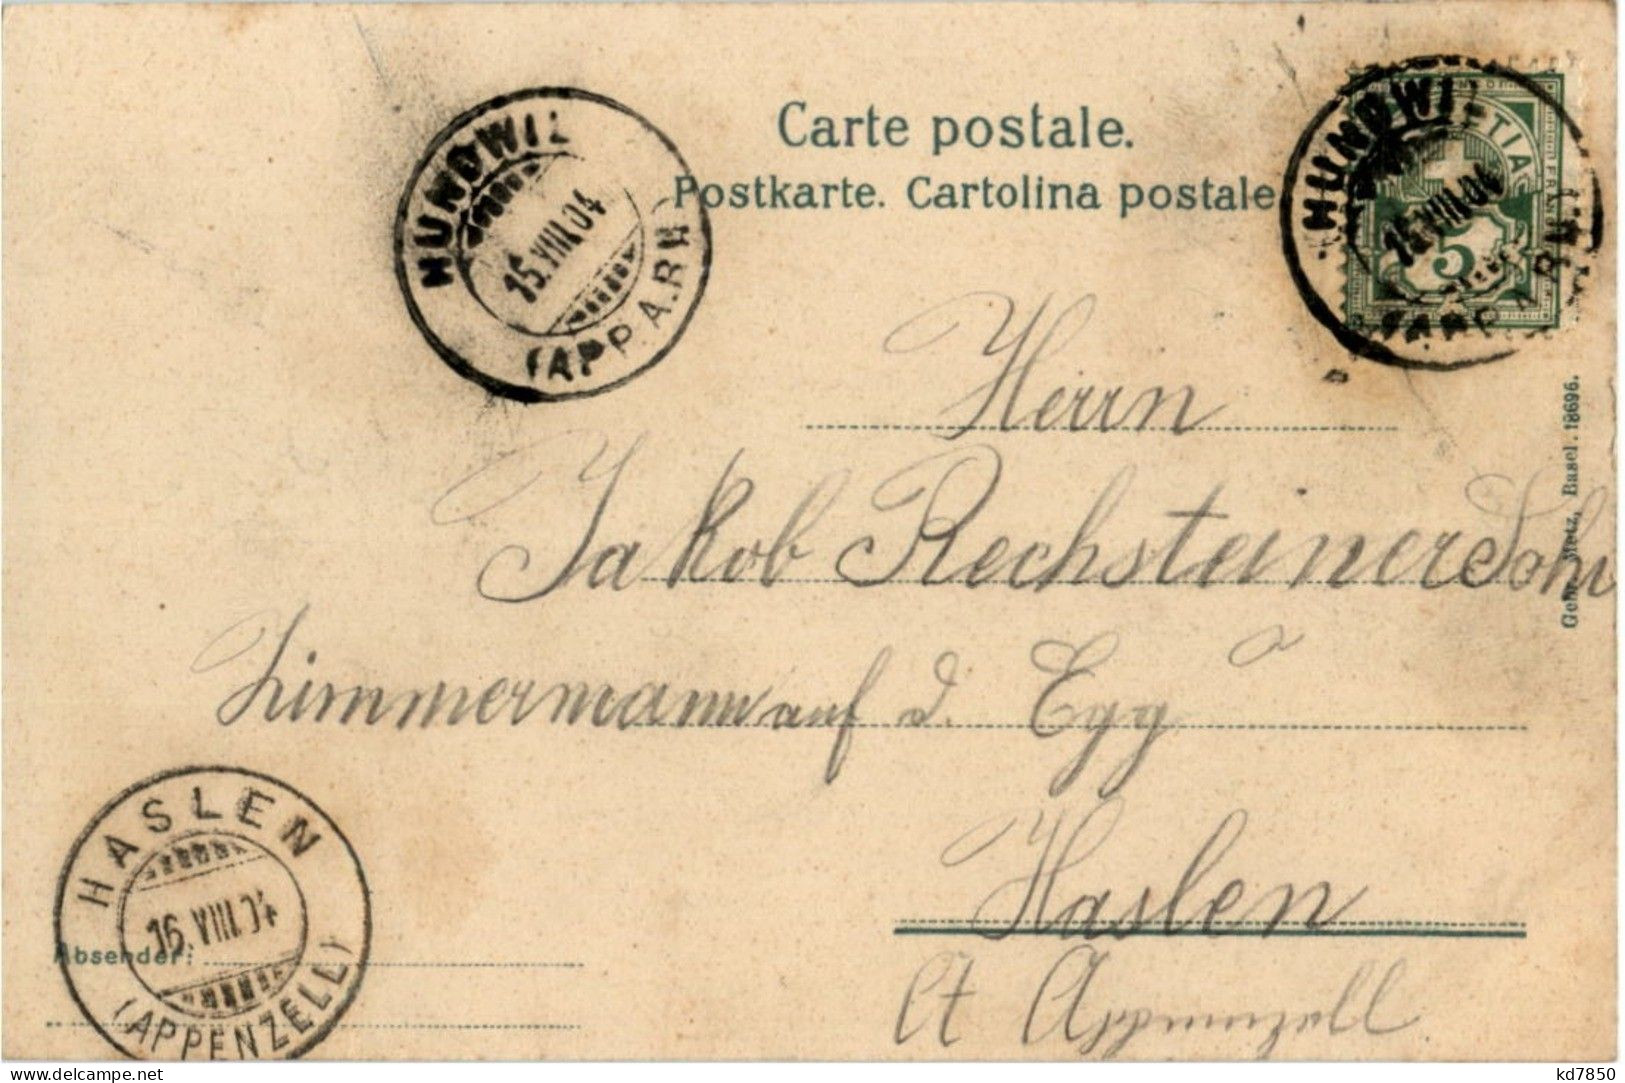 Carte postale.
Postkarte. Cartolina postale
HUNDWIL
15.VIII.04
(APP. A.RH)
HUNDWIL
15.VIII.04
(APP. A.RH)
5
Herrn
Jakob Rechsteiner Sohn
Zimmermann auf d. Egg
Haslen
Ct Appenzell
HASLEN
16.VIII.04
(APPENZELL)
Absender:
Gebr. Metz, Basel. 18696.
www.delcampe.net
kd7850